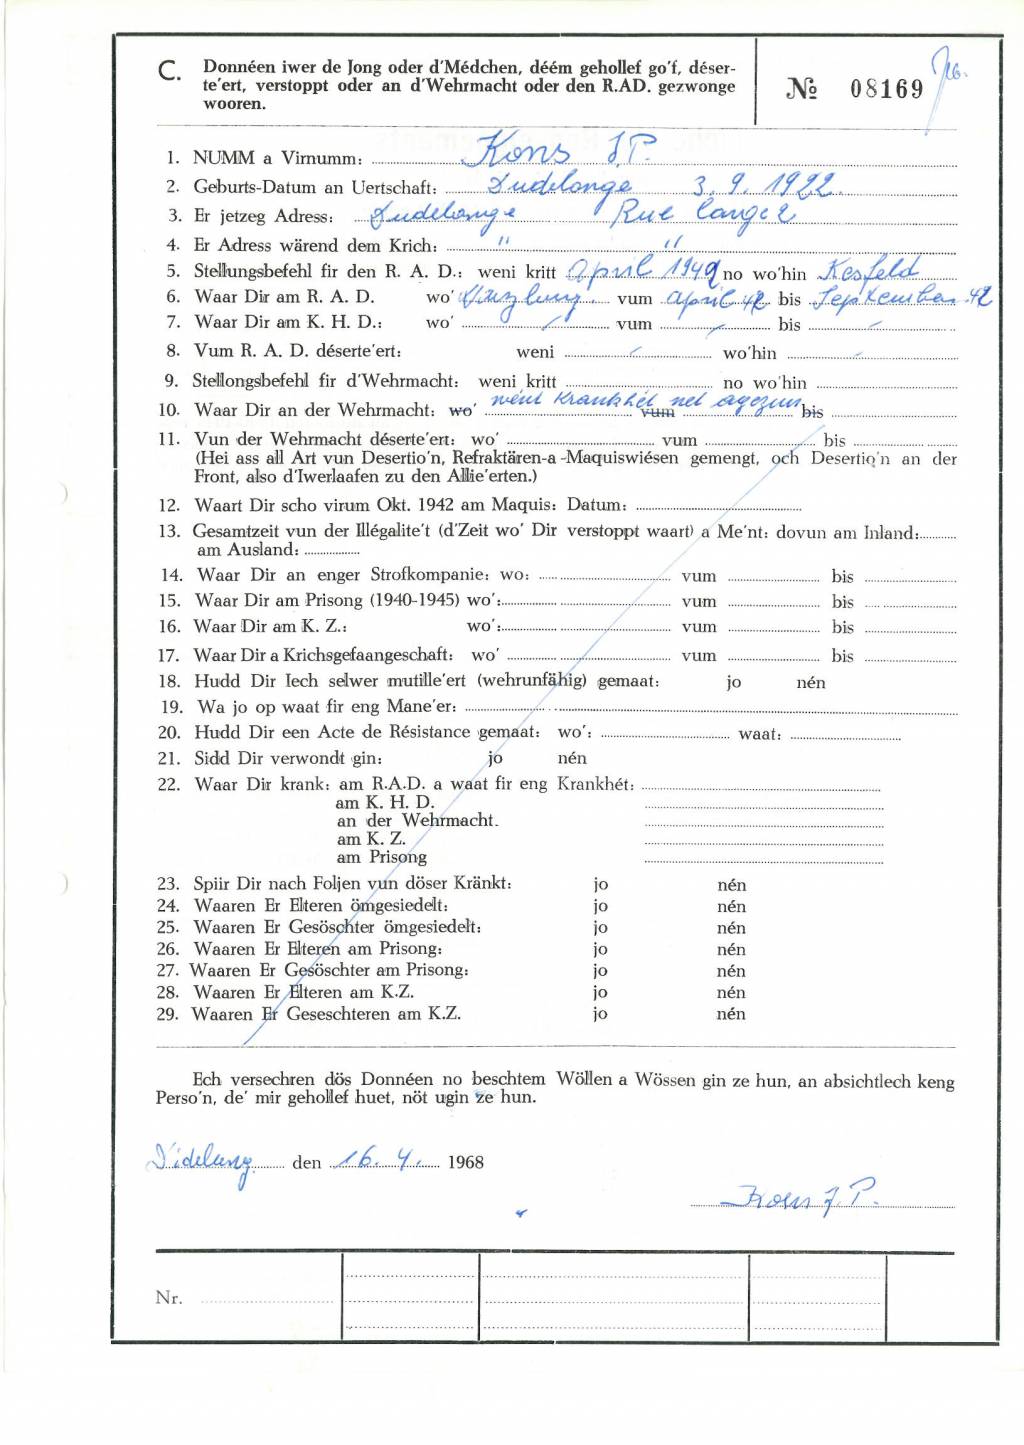 C. Donnéen iwer de Jong oder d'Médchen, déém gehollef go'f, déser-
te'ert, verstoppt oder an d'Wehrmacht oder den R.AD. gezwonge
wooren.
№ 08169
1. NUMM a Virnumm: Kons J.P.
2. Geburts-Datum an Uertschaft: Dudelange 3.9.1922.
3. Er jetzeg Adress: Dudelange Rue Large 2
4. Er Adress wärend dem Krich: " "
5. Stellungsbefehl fir den R. A. D.: weni kritt April 1942 no wo'hin Kesfeld
6. Waar Dir am R. A. D. wo' vum april 42 bis September 42
7. Waar Dir am K. H. D.: wo' / vum / bis /
8. Vum R. A. D. déserte'ert: weni / wo'hin /
9. Stellongsbefehl fir d'Wehrmacht: weni kritt no wo'hin
10. Waar Dir an der Wehrmacht: wo' wént Krankhét net agezun vum bis
11. Vun der Wehrmacht déserte'ert: wo' vum bis
(Hei ass all Art vun Desertio'n, Refraktären-a -Maquiswiésen gemengt, och Desertio'n an der
Front, also d'Iwerlaafen zu den Allie'erten.)
12. Waart Dir scho virum Okt. 1942 am Maquis: Datum:
13. Gesamtzeit vun der Illégalite't (d'Zeit wo' Dir verstoppt waart) a Me'nt: dovun am Inland:
am Ausland:
14. Waar Dir an enger Strofkompanie: wo: vum bis
15. Waar Dir am Prisong (1940-1945) wo': vum bis
16. Waar Dir am K. Z.: wo': vum bis
17. Waar Dir a Krichsgefaangeschaft: wo' vum bis
18. Hudd Dir Iech selwer mutille'ert (wehrunfähig) gemaat: jo nén
19. Wa jo op waat fir eng Mane'er:
20. Hudd Dir een Acte de Résistance gemaat: wo': waat:
21. Sidd Dir verwondt gin: jo nén
22. Waar Dir krank: am R.A.D. a waat fir eng Krankhét:
am K. H. D.
an der Wehrmacht.
am K. Z.
am Prisong
23. Spiir Dir nach Foljen vun döser Kränkt: jo nén
24. Waaren Er Elteren ömgesiedelt: jo nén
25. Waaren Er Gesöschter ömgesiedelt: jo nén
26. Waaren Er Elteren am Prisong: jo nén
27. Waaren Er Gesöschter am Prisong: jo nén
28. Waaren Er Elteren am K.Z. jo nén
29. Waaren Er Geseschteren am K.Z. jo nén
Ech versechren dös Donnéen no beschtem Wöllen a Wössen gin ze hun, an absichtlech keng
Perso'n, de' mir gehollef huet, nöt ugin ze hun.
Didelung den 16.4. 1968
Kons J.P.
Nr.